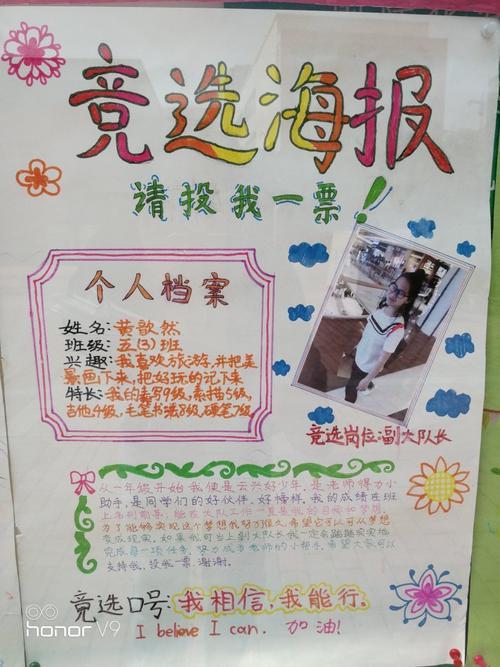 竞选海报
请投我一票!
个人档案
姓名:黄歆然
班级:五(3)班
兴趣:我喜欢旅游,并把美
景画下来,把好玩的记下来
特长:我的素写9级,素描5级,
吉他4级,毛笔书法8级,硬笔7级,
竞选岗位:副大队长
从一年级开始我便是云兴好少年,是老师得力小
助手,是同学们的好伙伴,好榜样,我的成绩在班
上名列前茅,能在大队工作一直是我的目标和梦想,
为了能够实现这个梦想我努力很久,希望它可以从梦想
变成现实。如果我可当上副大队长我一定会踏踏实实地
完成每一项任务,努力成为老师的小帮手,希望大家可以
支持我,投我一票,谢谢。
竞选口号:我相信,我能行。
I believe I can. 加油!
honor V9